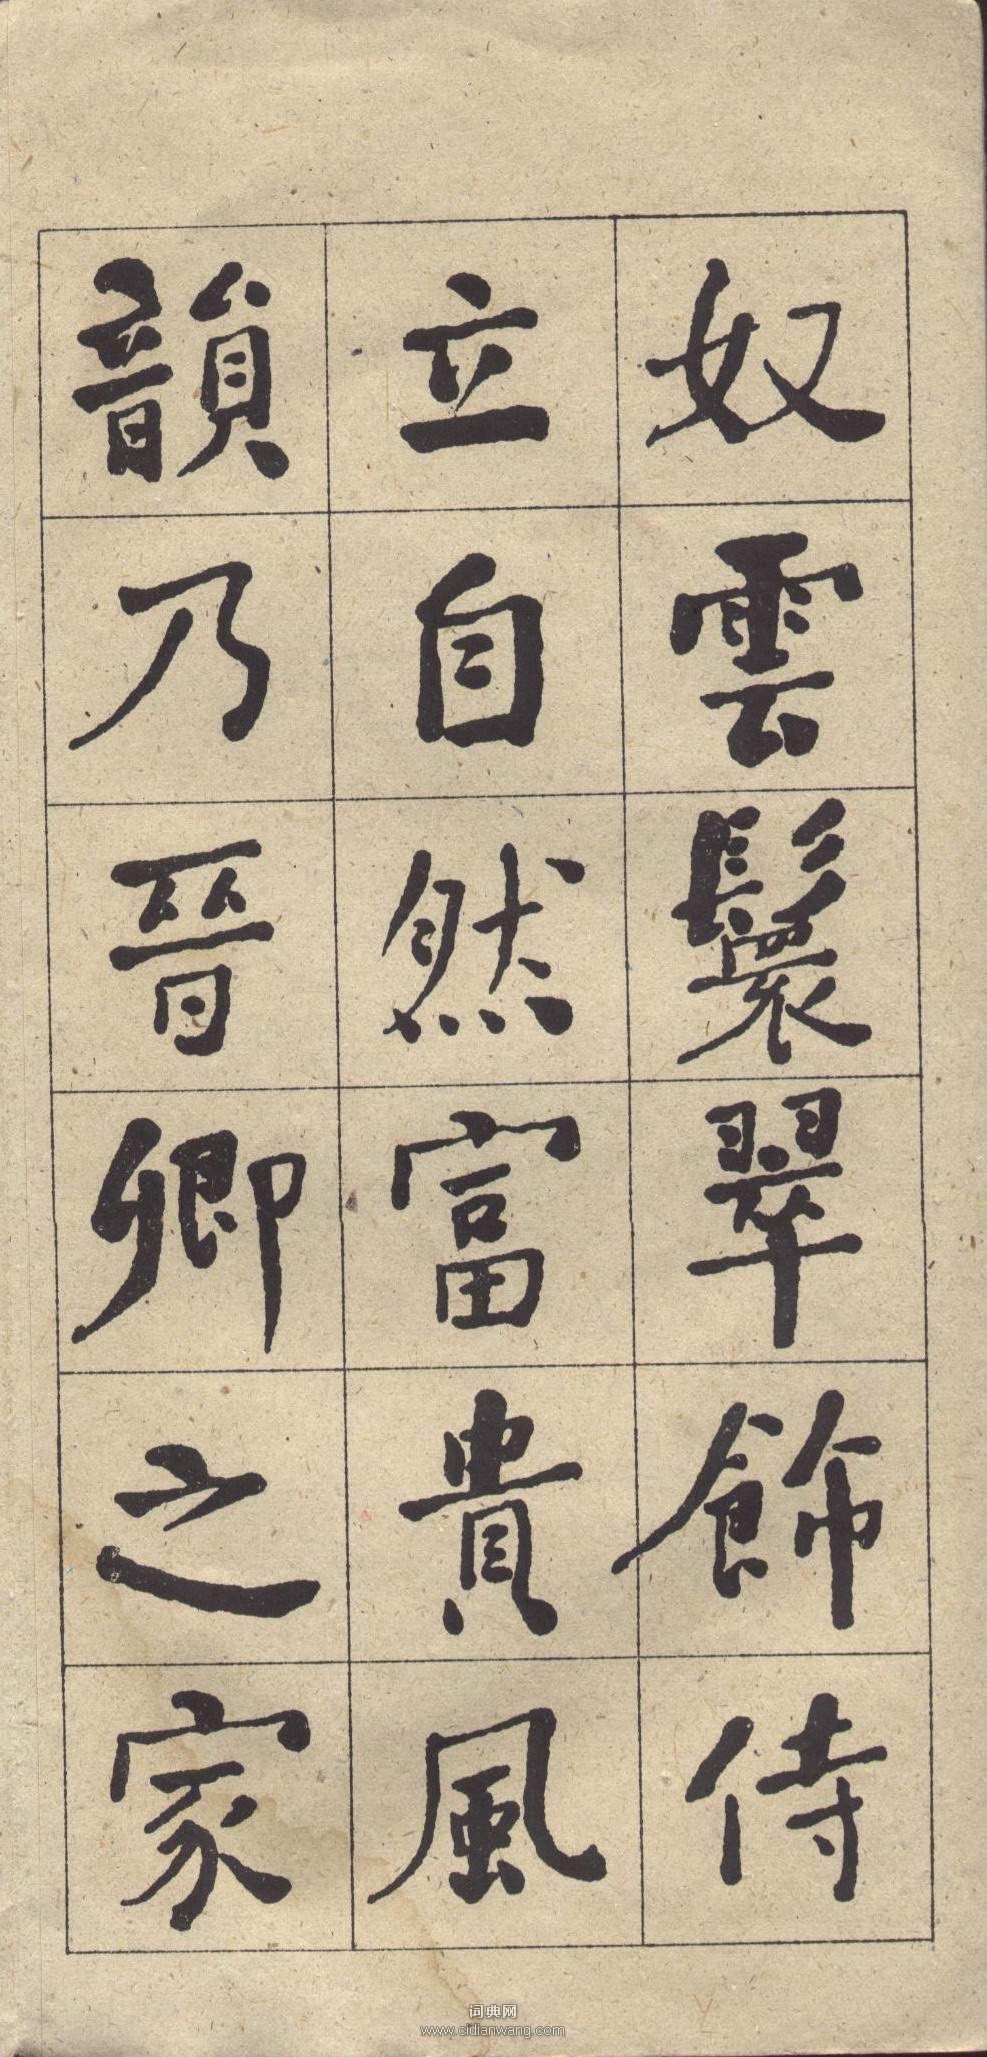 奴雲鬟翠飾侍
立自然富貴風
韻乃晉卿之家
词典网
www.cidianwang.com